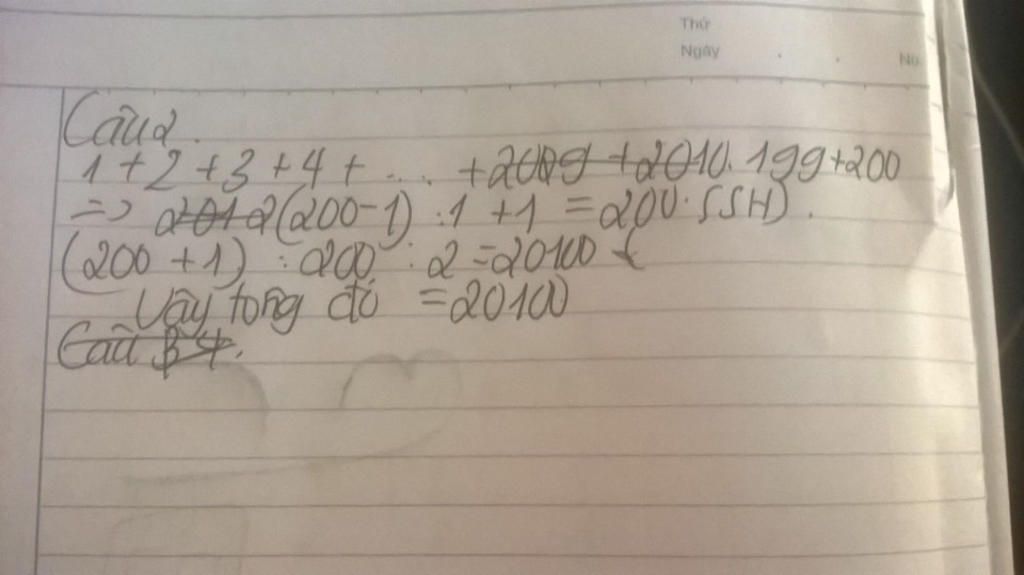 Thứ
Ngày . . No.
Câu 2.
1 + 2 + 3 + 4 + .... + 2009 + 2010. 199 + 200
=> 2012 (200 - 1) : 1 + 1 = 200. (SSH).
(200 + 1) . 200 : 2 = 20100
Vậy tổng đó = 20100
Câu 4.